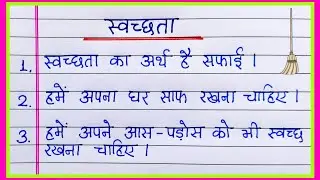 स्वच्छता
1. स्वच्छता का अर्थ है सफाई ।
2. हमें अपना घर साफ रखना चाहिए ।
3. हमें अपने आस-पड़ोस को भी स्वच्छ
रखना चाहिए ।